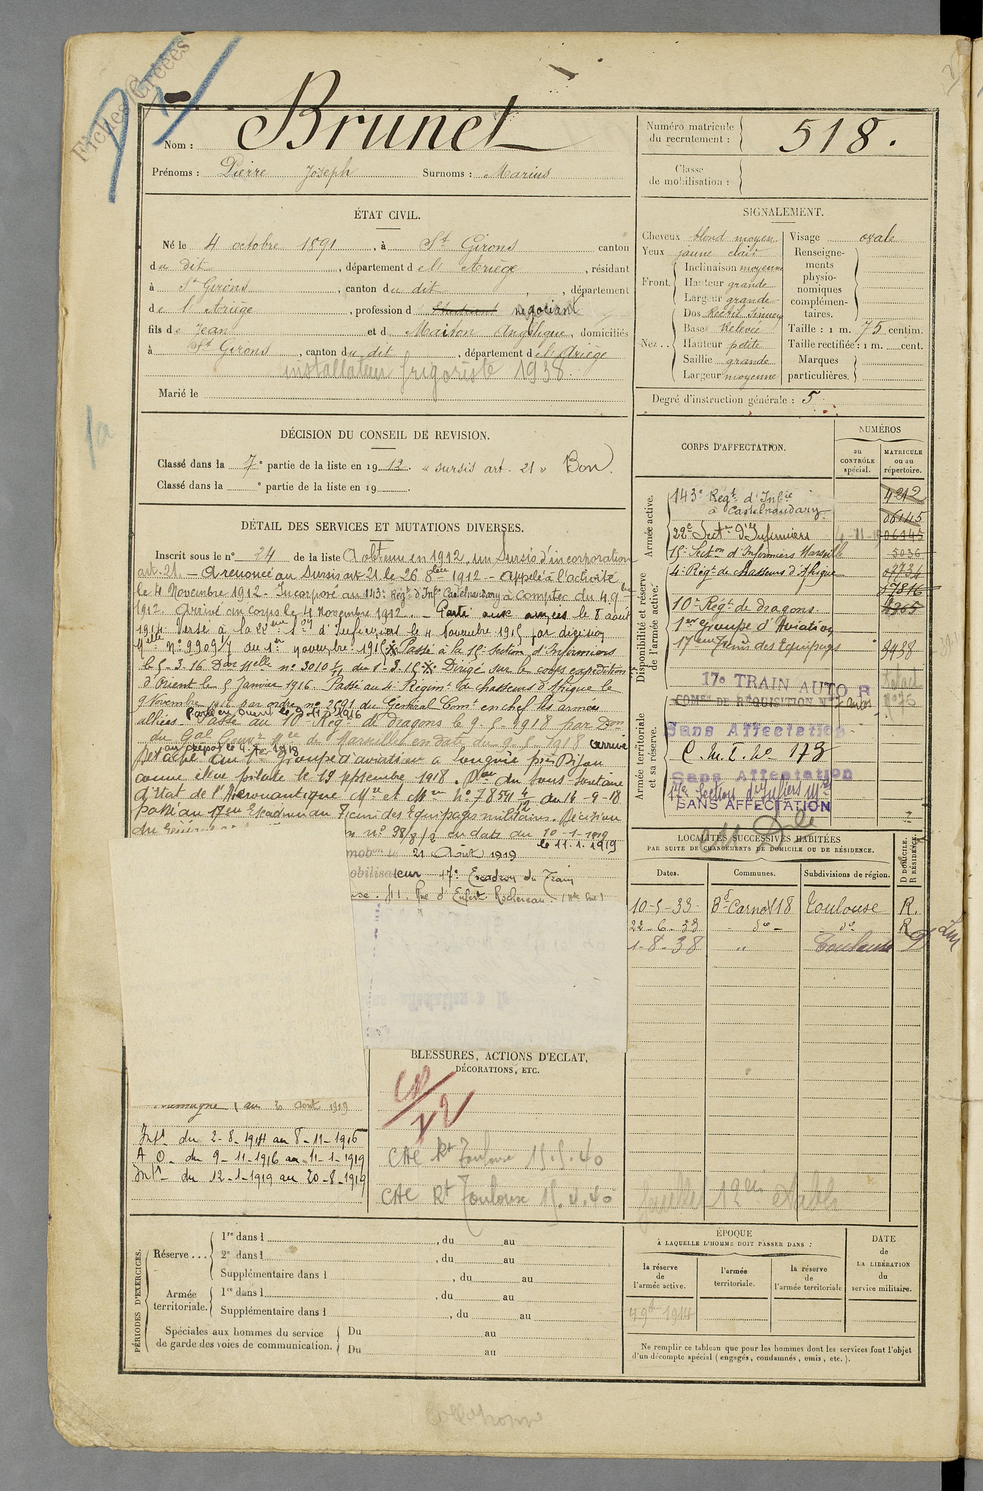 Fiches Créées
Nom : Brunet
Prénoms : Pierre Joseph Surnoms : Marius
Numéro matricule du recrutement : 518.
Classe de mobilisation :
ÉTAT CIVIL.
Né le 4 octobre 1891, à St Girons canton
du dit, département de l'Ariège, résidant
à St Girons, canton du dit, département
de l'Ariège, profession d Etudiant négociant
fils de Jean et d Maison Angélique, domiciliés
à St Girons, canton du dit, département de l'Ariège
installateur frigoriste 1938.
Marié le
SIGNALEMENT.
Cheveux blond moyen
Yeux jaune clair
Front. Inclinaison moyenne
Hauteur grande
Largeur grande
Nez .. Dos Rectil. Sinueux
Base Relevée
Hauteur petite
Saillie grande
Largeur moyenne
Visage ovale
Renseignements physionomiques complémentaires.
Taille : 1 m. 75 centim.
Taille rectifiée : 1 m. cent.
Marques particulières.
Degré d'instruction générale : 5
DÉCISION DU CONSEIL DE REVISION.
Classé dans la 7e partie de la liste en 1912. « sursis art. 21 » Bon.
Classé dans la e partie de la liste en 19
DÉTAIL DES SERVICES ET MUTATIONS DIVERSES.
Inscrit sous le n° 24 de la liste A obtenu en 1912 un Sursis d'incorporation
art. 21. — A renoncé au Sursis art. 21 le 26 8bre 1912 - Appelé à l'activité
le 4 Novembre 1912 - Incorporé au 143e Régt d'Infie Castelnaudary à compter du 4 9bre
1912. Arrivé au corps le 4 Novembre 1912. - Parti aux armées le 8 août
1914. Versé à la 22eme Son d'Infirmiers le 4 Novembre 1915 par décision
Mlle n° 22094/7 du 1er novembre 1915 x Passé à la 15e Section d'Infirmiers
le 5. 3. 16. Don Mlle n° 3010 du 1er 3. 16 x Dirigé sur le corps expéditionre
d'Orient le 5 Janvier 1916. Passé au 4e Régimt de chasseurs d'Afrique le
9 Novembre 1916 par ordre n° 2691 du Général Comt en chef les armées
alliées. Parti en Orient le 9-11-1916 Passé au 10e Régt de Dragons le 9. 5. 1918 par Don
du Gal Gouvr Mre de Marseille en date du 9. 5. 1918 arrivé
au dépôt le
Détaché au 1er Groupe d'aviation à Longvic près Dijon
comme élève pilote le 13 septembre 1918. Don du Sous Secrétaire
d'Etat de l'Aéronautique Mre et Mme N° 78541 du 16-9-18
passé au 17eme Escadron du Train des Equipages militaires. Décision
n n° 38/8/2 en date du 10-1-1919
le 11.1.1919
le 21 Août 1919
17e Escadron du Train
41 Rue d'Enfert Rochereau
au 2 Août 1919
Infr du 2-8-1914 au 8-11-1916
A O. du 9-11-1916 au 11-1-1919
Infr du 12-1-1919 au 20-8-1919
BLESSURES, ACTIONS D'ECLAT,
DÉCORATIONS, ETC.
CAC Rt Toulouse 15.5.40
CAC Rt Toulouse 15.4.40
CORPS D'AFFECTATION.
NUMÉROS
au CONTRÔLE spécial.
MATRICULE ou au répertoire.
Armée active.
143e Regt d'Infie à Castelnaudary 4212
06145
22e Secton d'Infirmiers 4-11-15 06345
15e Secton d'Infirmiers Marseille 5036
Disponibilité et réserve de l'armée active.
4e Régt de chasseurs d'Afrique 07734
57816
10e Régt de dragons 4365
1er groupe d'Aviation
17eme Train des Equipages 9438
17e TRAIN AUTO R
COMon DE RÉQUISITION No autos No 76
Armée territoriale et sa réserve.
Sans Affectation
C. M. I. No 173
Sans Affectation
17e Section d'Infiers Mres
SANS AFFECTATION
LOCALITÉS SUCCESSIVES HABITÉES
PAR SUITE DE CHANGEMENTS DE DOMICILE OU DE RÉSIDENCE.
D DOMICILE. R RÉSIDENCE.
Dates. Communes. Subdivisions de région.
10-5-33 Bd Carnot 18 Toulouse R.
22-6-33 - do - do R
1-8-38 " Toulouse D
PÉRIODES D'EXERCICES.
Réserve ... 1re dans l , du au
2e dans l , du au
Supplémentaire dans l , du au
Armée territoriale. 1re dans l , du au
Supplémentaire dans l , du au
Spéciales aux hommes du service de garde des voies de communication. Du au
Du au
ÉPOQUE
A LAQUELLE L'HOMME DOIT PASSER DANS :
la réserve de l'armée active.
l'armée territoriale.
la réserve de l'armée territoriale
DATE de LA LIBÉRATION du service militaire.
1914
Ne remplir ce tableau que pour les hommes dont les services font l'objet
d'un décompte spécial (engagés, condamnés, omis, etc.).